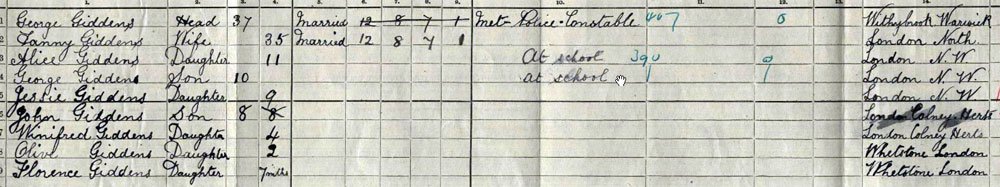 1 George Giddens Head 37 Married 12 8 7 1 Met-Police-Constable 407 0 Withybrook Warwick
2 Fanny Giddens Wife 35 Married 12 8 7 1 London North.
3 Alice Giddens Daughter 11 At school 390 9 London N.W.
4 George Giddens Son 10 at school London N.W.
5 Jessie Giddens Daughter 9 London N.W
6 John Giddens Son 8 8 London Colney Herts
7 Winifred Giddens Daughter 4 London Colney Herts
8 Olive Giddens Daughter 2 Whetstone London
9 Florence Giddens Daughter 7mths Whetstone London